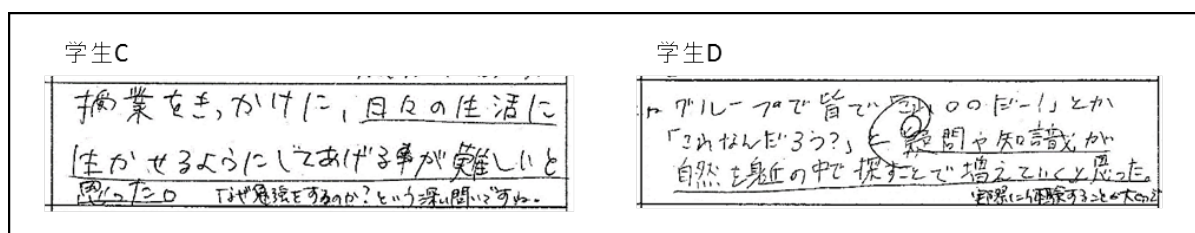 学生C
授業をきっかけに、日々の生活に
生かせるようにしてあげる事が難しいと
思った。 「なぜ勉強をするのか?という深い問いですね。
学生D
グループで皆で「 〇〇のだー!」とか
「これなんだろう?」と疑問や知識が
自然を身近の中で探すことで増えていくと思った。
実際に体験することが大